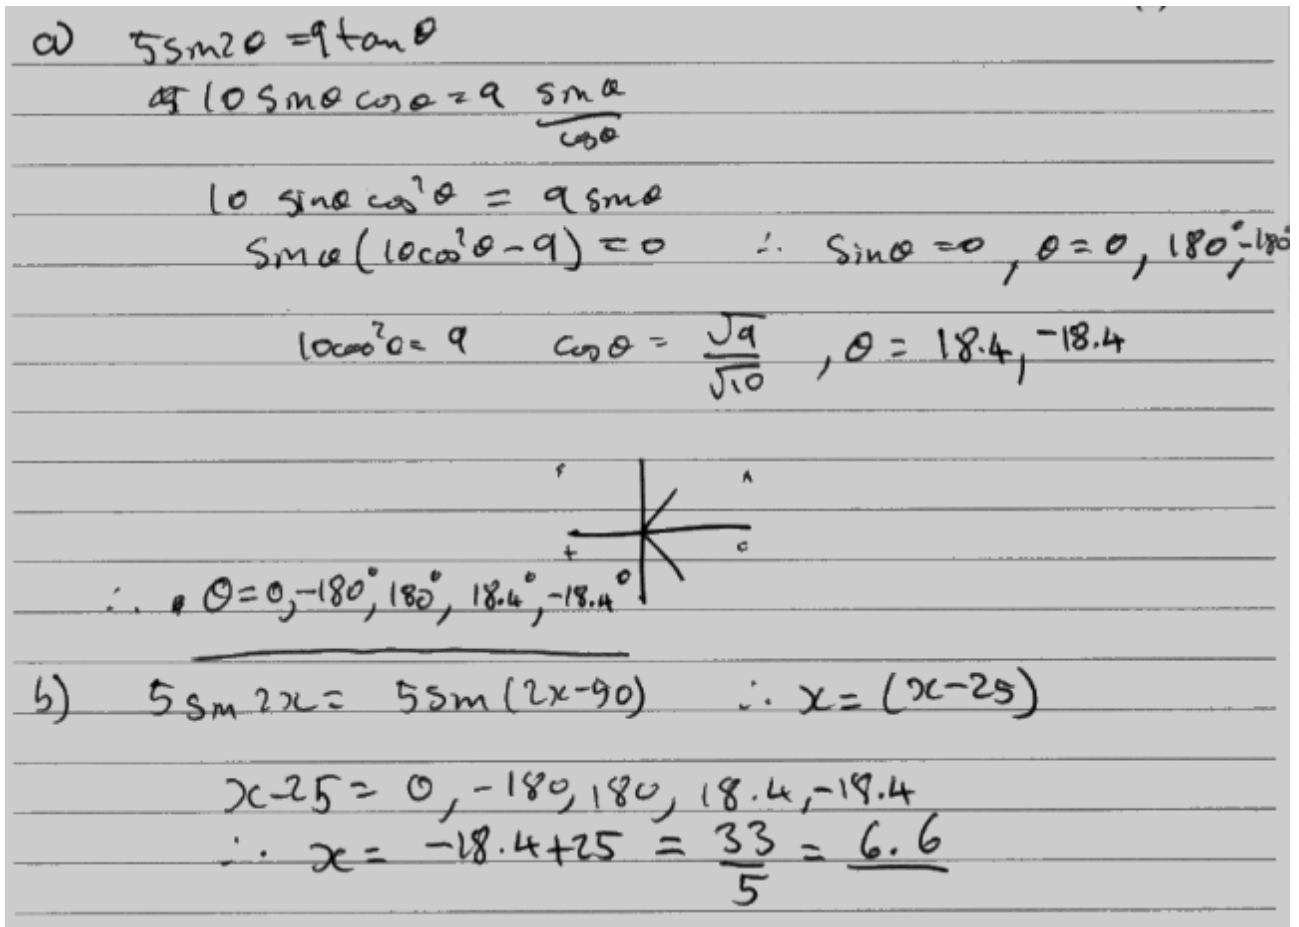 a) 5sin2θ = 9tanθ
10 sinθ cosθ = 9 sinθ/cosθ
10 sinθ cos²θ = 9 sinθ
sinθ(10cos²θ - 9) = 0 ∴ sinθ = 0, θ = 0, 180°, -180°
10cos²θ = 9 cosθ = √9/√10, θ = 18.4, -18.4
A
+ c
∴ θ = 0, -180°, 180°, 18.4°, -18.4°
b) 5sin2x = 5sin(2x-50) ∴ x = (x-25)
x-25 = 0, -180, 180, 18.4, -18.4
∴ x = -18.4+25 = 33/5 = 6.6